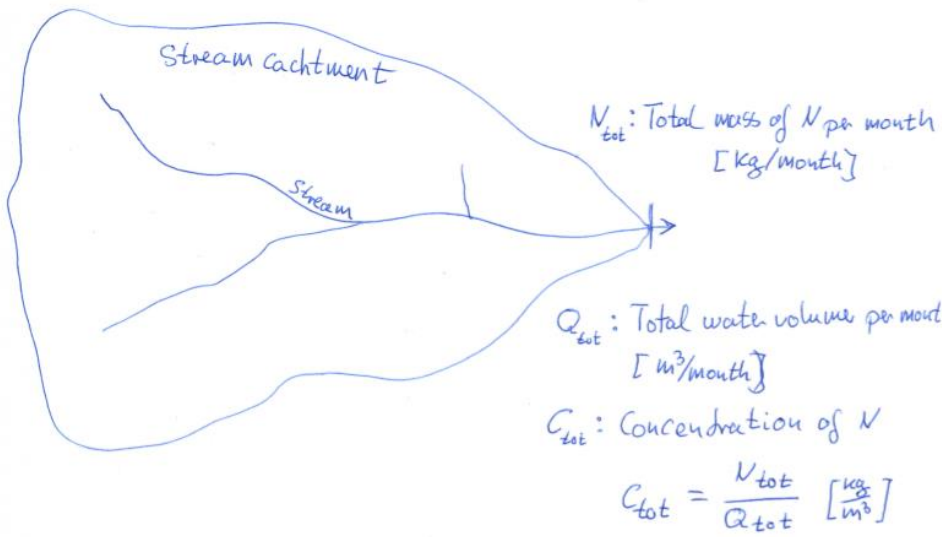 Stream cachtment
N_tot : Total mass of N per month
[kg/month]
Stream
Q_tot : Total water volume per mont
[m³/month]
C_tot : Concentration of N
C_tot = N_tot / Q_tot [kg/m³]